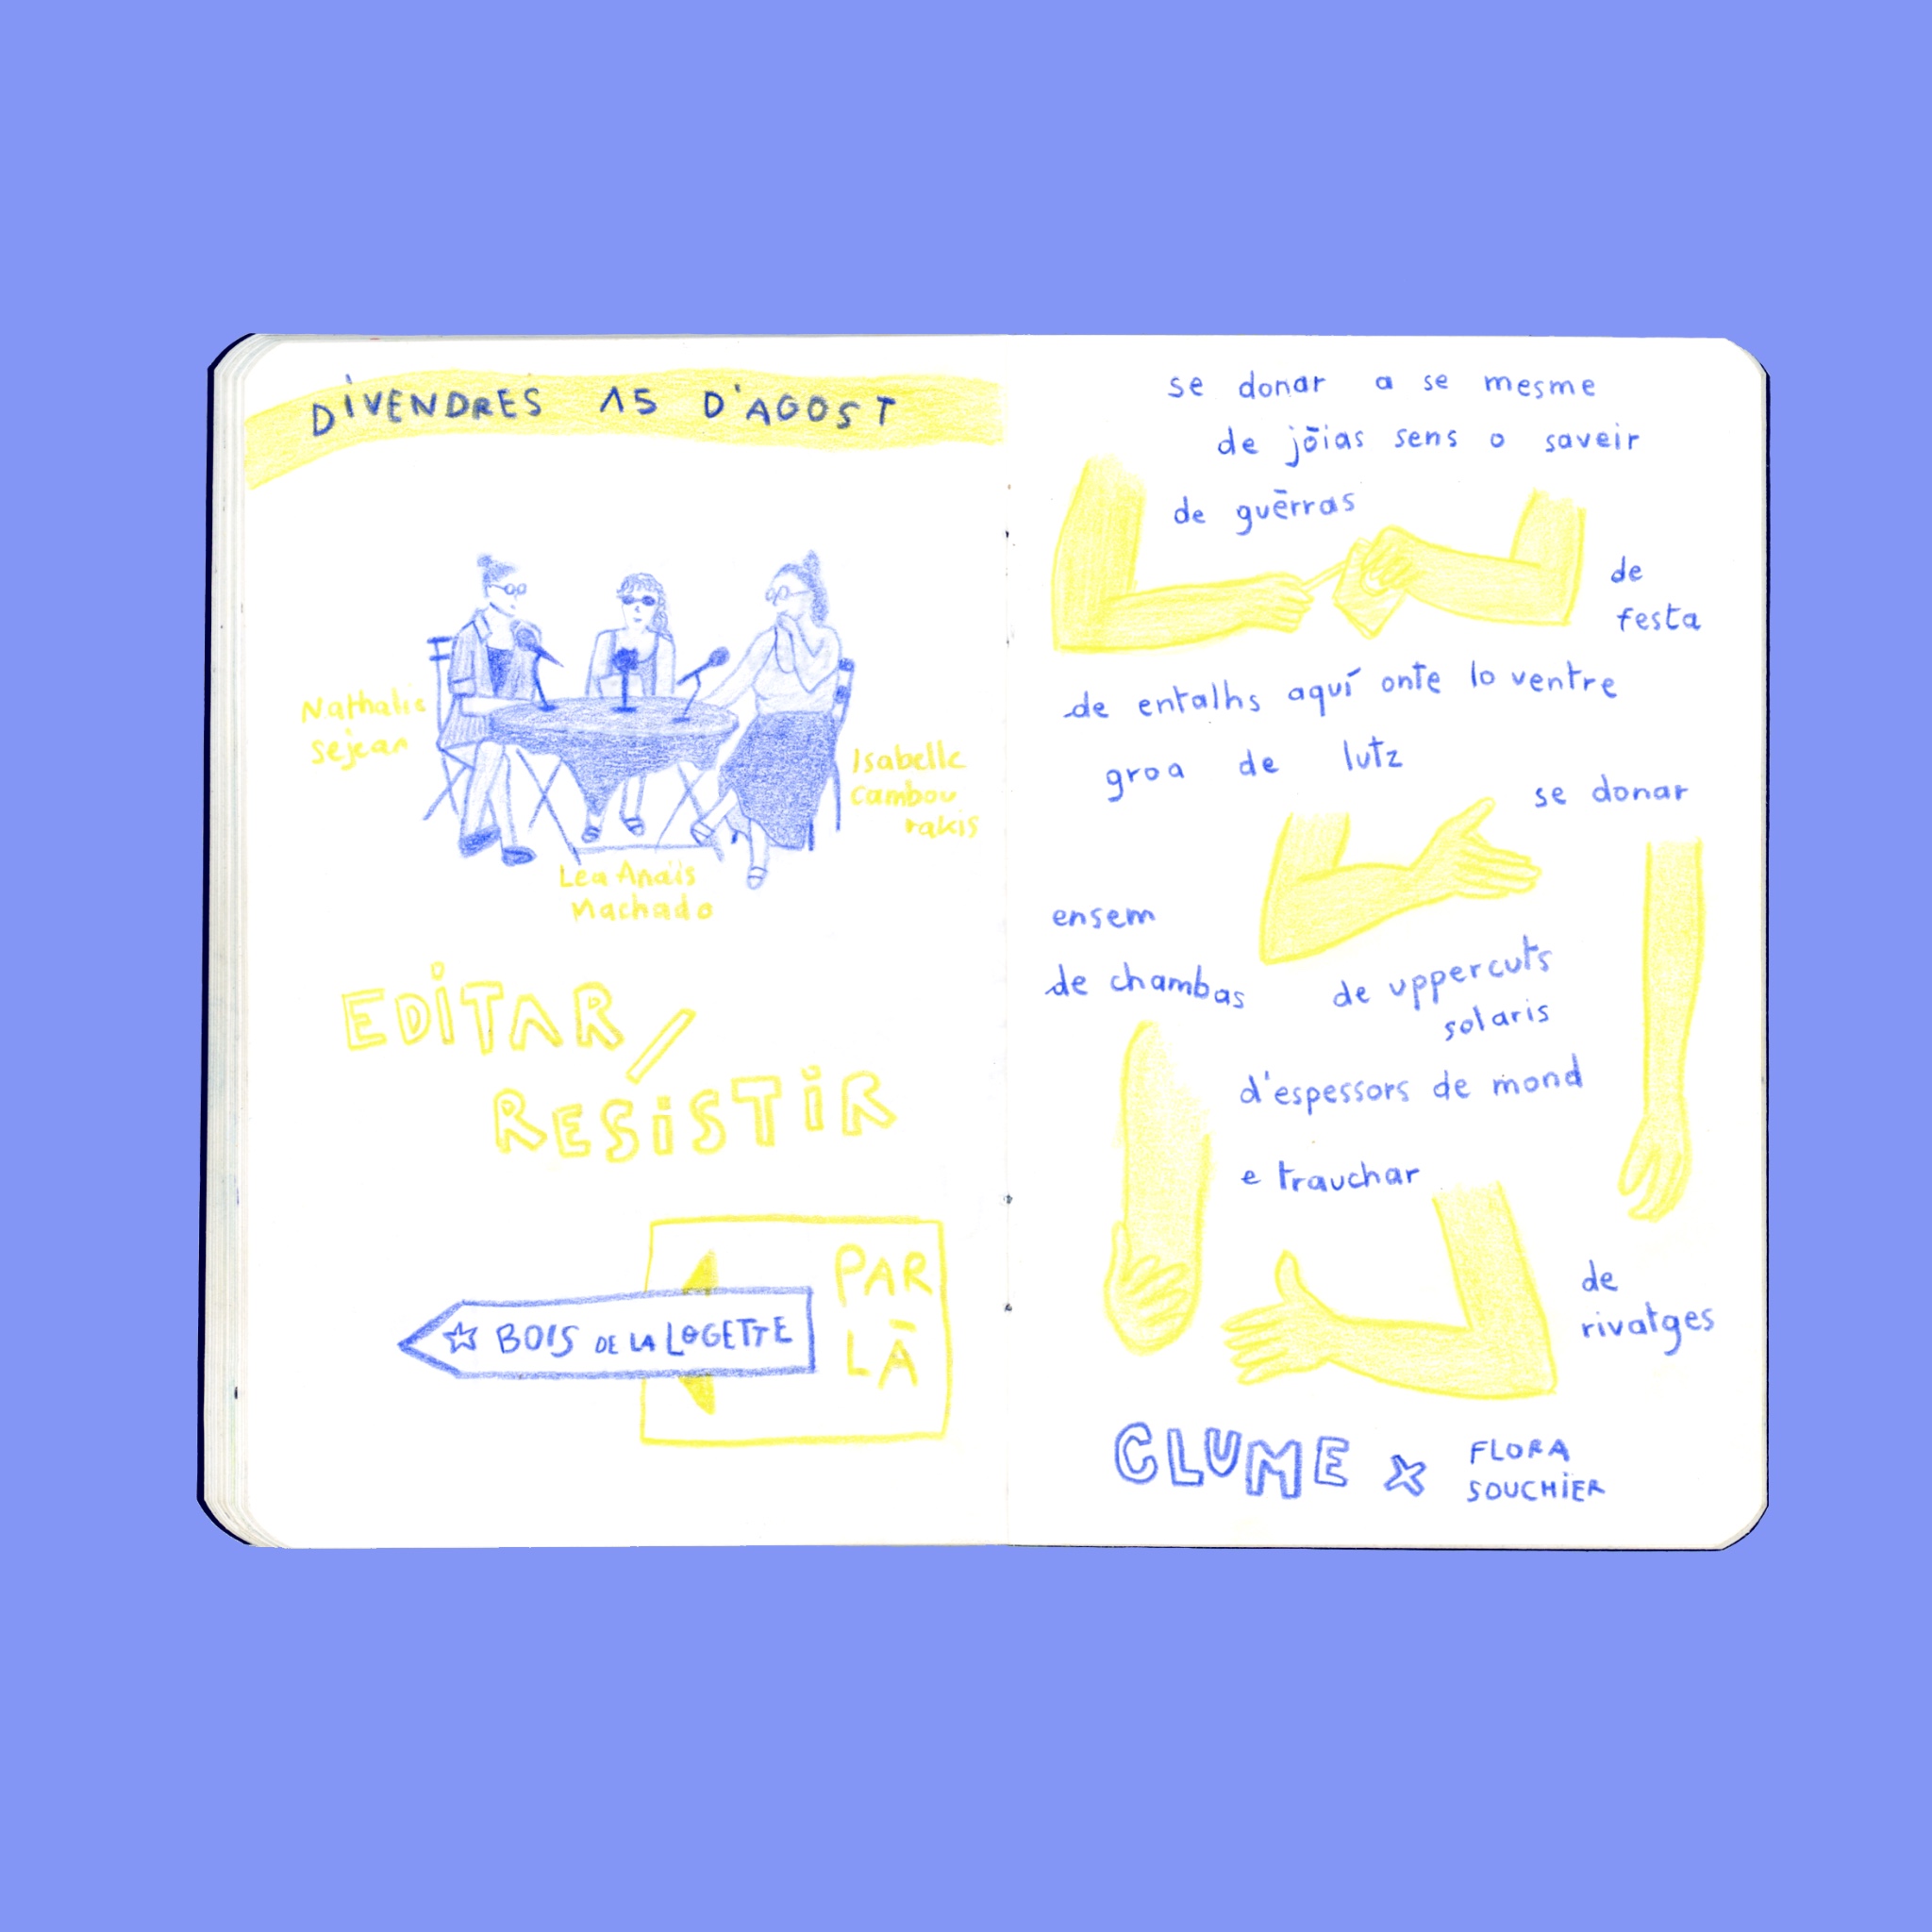 DIVENDRES 15 D'AGOST
Nathalie
Sejean
Isabelle
Cambou
rakis
Lea Anaïs
Machado
EDITAR/
RESISTIR
PAR
LĀ
☆ BOIS DE LA LOGETTE
se donar a se mesme
de jōias sens o saveir
de guērras
de
festa
de entalhs aquí onte lo ventre
groa de lutz
se donar
ensem
de chambas
de uppercuts
solaris
d'espessors de mond
e trauchar
de
rivatges
CLUME x FLORA
SOUCHIER